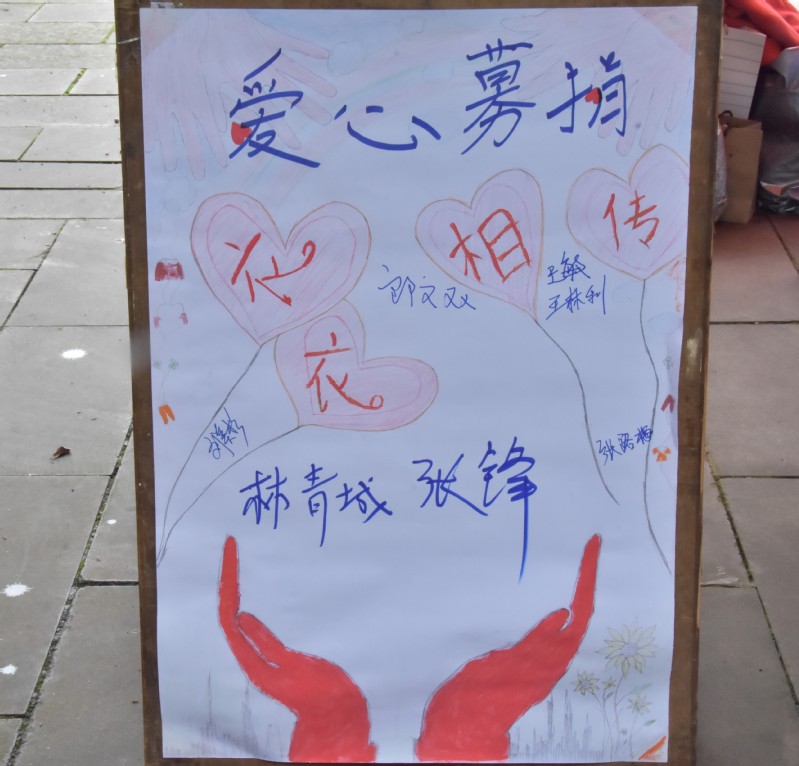 爱心募捐
衣衣相传
郎文双
王敏
王林利
张海梅
林青城 张锋